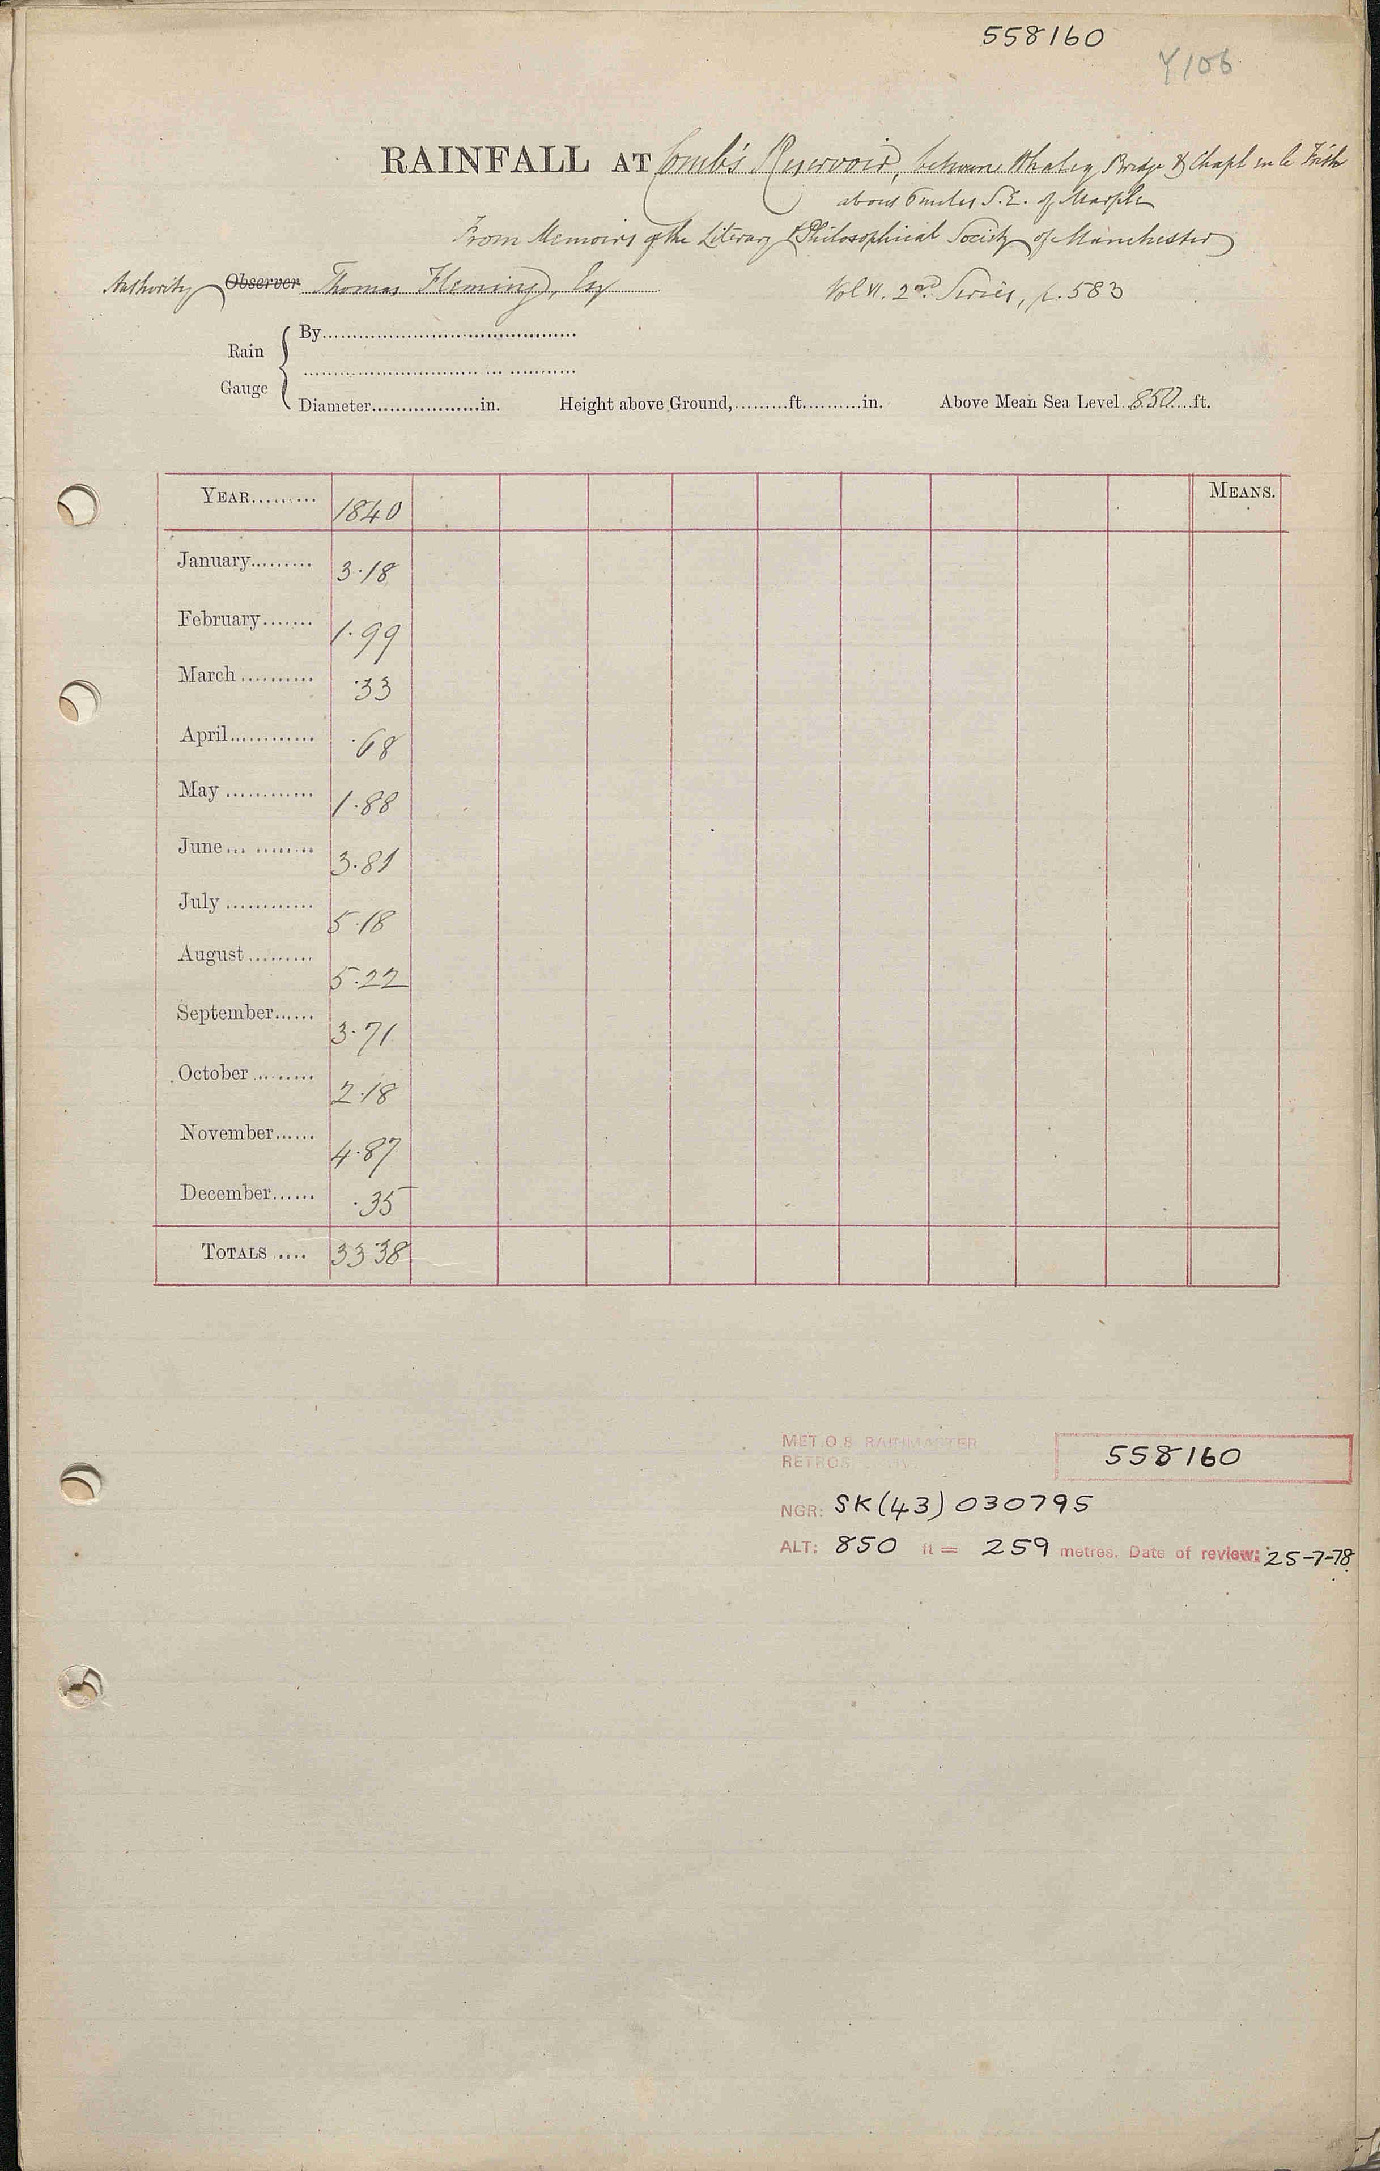 558160
Y106
RAINFALL AT Comb's Reservoir, between Whaley Bridge & Chapl en le Frith
about 6 miles S.E. of Marple
From Memoirs of the Literary & Philosophical Society of Manchester
Authority Observer Thomas Fleming, Esq Vol VI. 2nd Series, p. 583
Rain Gauge
By
Diameter in. Height above Ground, ft. in. Above Mean Sea Level 850 ft.
YEAR 1840 MEANS.
January 3.18
February 1.99
March .33
April .68
May 1.88
June 3.81
July 5.18
August 5.22
September 3.71
October 2.18
November 4.87
December .35
TOTALS 33.38
MET O 8 RAINMASTER 558160
NGR: SK(43)030795
ALT: 850 ft = 259 metres. Date of review: 25-7-78